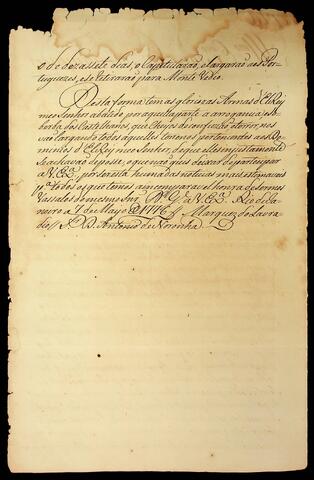 e de dezassete dias, e Capitularão, e largarão aos Por-
tuguezes, e se retirarão para Monte Vedeo.
Desta forma tem as gloriozas Armas d'ElRey
meo Senhor abatido por aquella parte a arrogancia, e so-
berba dos Castelhanos, que cheyos de confuzão, e terror, nos
vão largando todos aquelles terrenos pertencentes aos Do-
minios d'ElRey meo Senhor, de que elles injustamente
se achavão de posse; o que não quis deixar de participar
a V. Ex.ª, por ser esta huma das noticias mais estimaveis
p.ª todos os que temos a incomparavel honra de sermos
Vassalos do mesmo Snr. D.s G.e a V. Ex.ª Rio de Ja-
neiro a 7 de Mayo de 1776 // Marquez de Lavra-
dio // S.r D. Antonio de Noronha